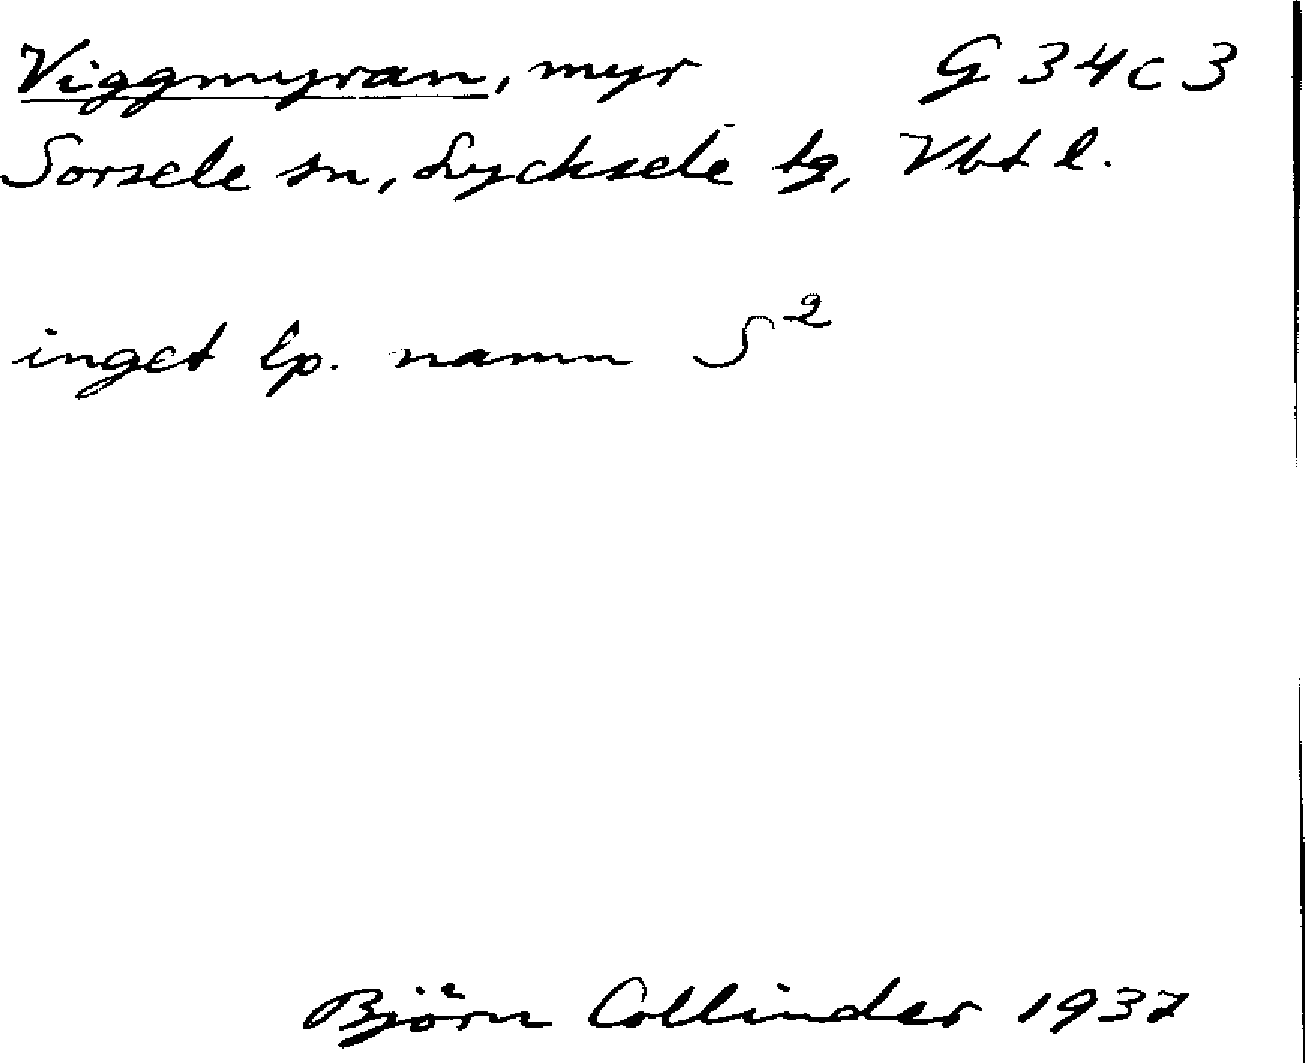 Viggmyran, myr G 34 c 3
Sorsele sn, Lycksele tg, Vbt l.
inget lp. namn S²
Björn Collinder 1937